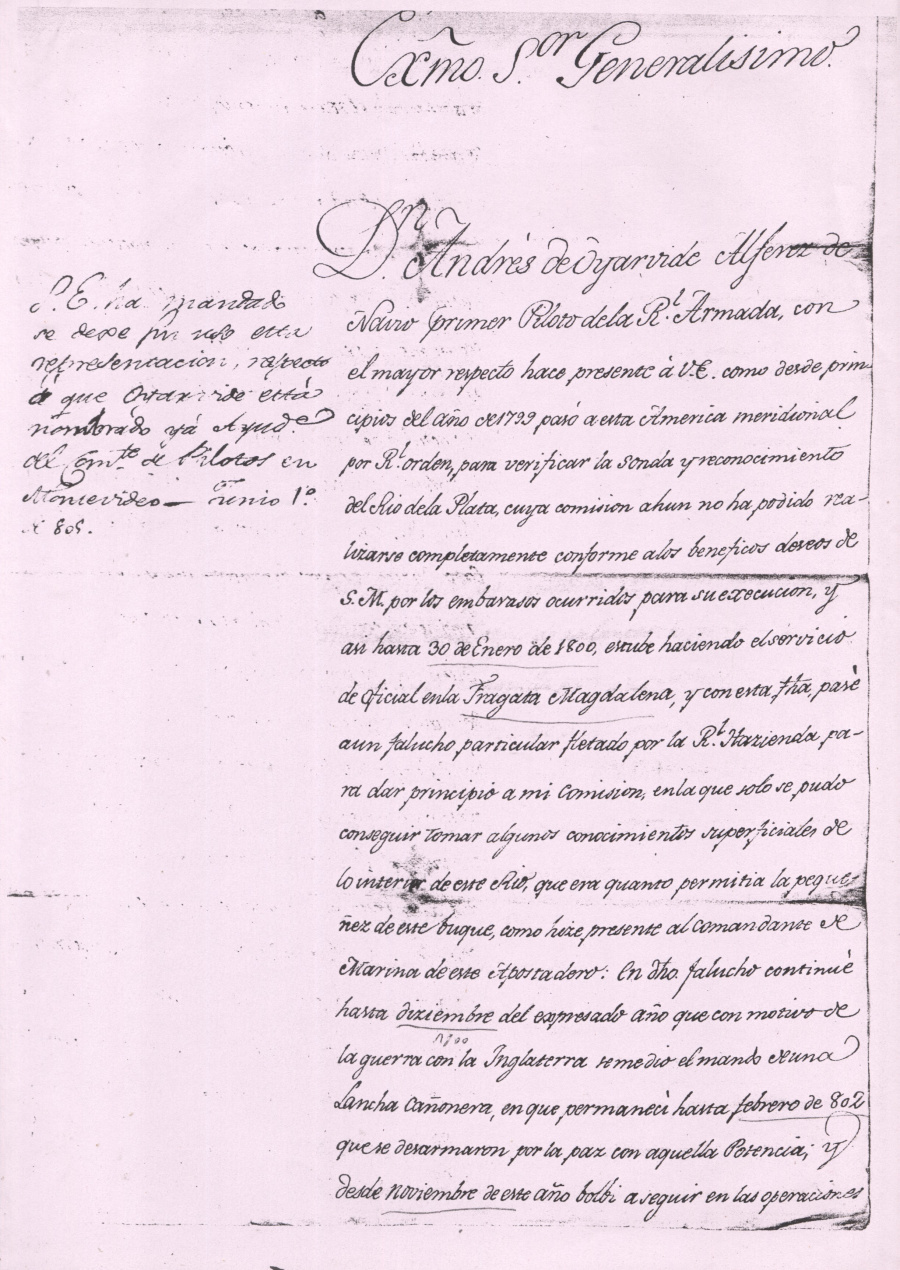 Exmo. S.or Generalisimo.
D.n Andrès de Oyarvide Alferez de
Navio primer Piloto dela R.l Armada, con
el mayor respecto hace presente à V.E. como desde prin-
cipios del año de 1799 pasó a esta America meridional
por R.l orden, para verificar la sonda y reconocimiento
del Rio dela Plata, cuya comision ahun no ha podido rea-
lizarse completamente conforme alos beneficos deseos de
S.M. por los embarasos ocurridos para su execucion, y
asi hasta 30 de Enero de 1800, estube haciendo el servicio
de oficial enla Fragata Magdalena, y con esta fha, pasè
aun falucho particular fletado por la R.l Hazienda pa-
ra dar principio a mi Comision, enla que solo se pudo
conseguir tomar algunos conocimientos superficiales de
lo interior de este Rio, que era quanto permitia la peque-
ñez de este buque, como hize presente al comandante de
Marina de este Apostadero: En dho. falucho continuè
hasta diziembre del expresado año que con motivo de
la guerra con la Inglaterra se medio el mando de una
Lancha Cañonera, en que permaneci hasta febrero de 802
que se desarmaron por la paz con aquella Potencia; y
desde Noviembre de este año bolbi a seguir en las operaciones
S.E. ha mandado
se deje sin uso esta
representacion, respecto
à que Oyarvide està
nombrado yà Ayud.e
del Com.te de Pilotos en
Montevideo — Junio 1.o
805.